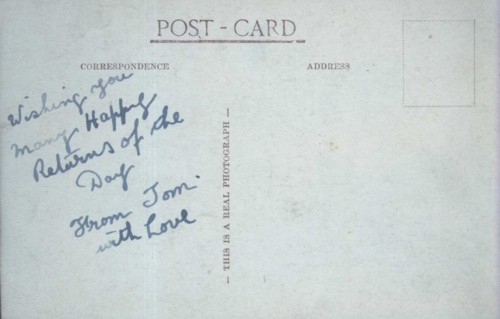 POST-CARD
CORRESPONDENCE
ADDRESS
Wishing you
many Happy
Returns of the
Day
From Tom.
with Love
— THIS IS A REAL PHOTOGRAPH —